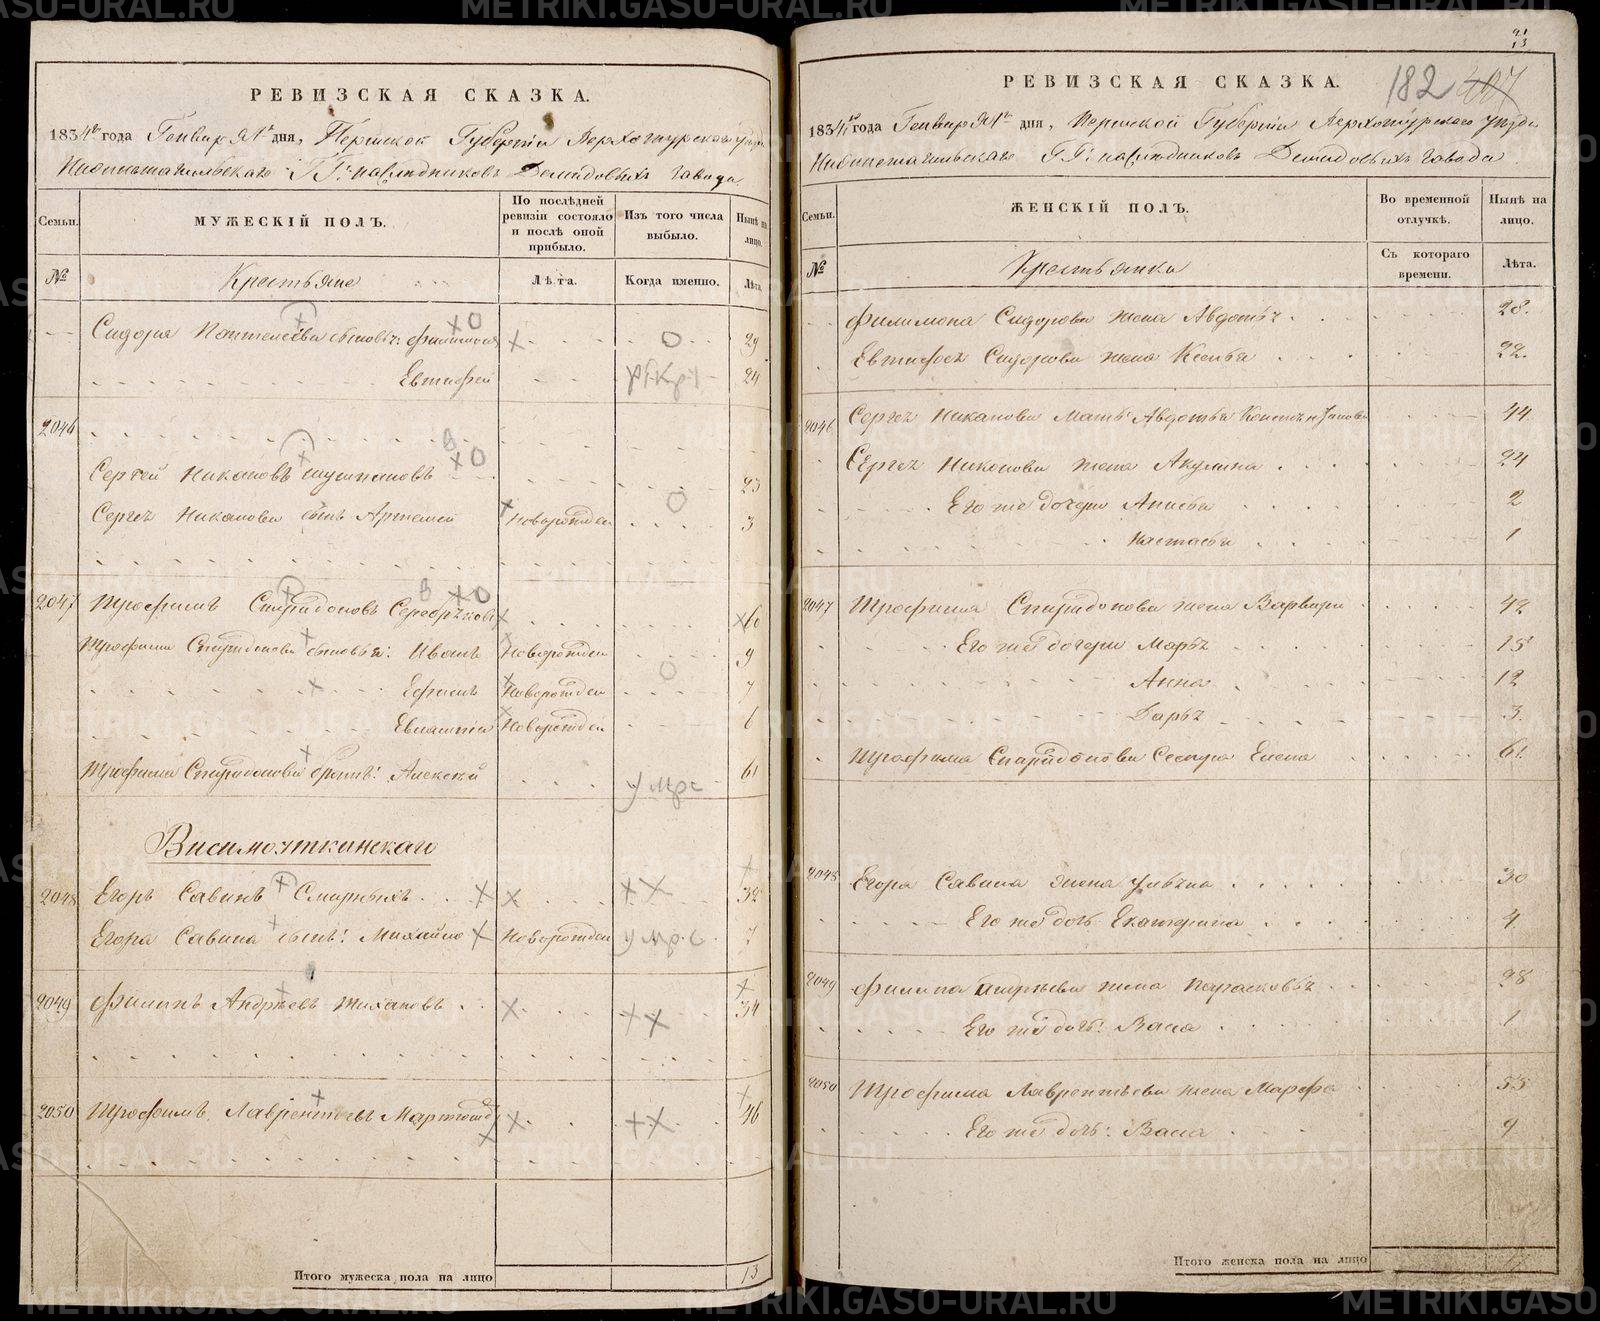 РЕВИЗСКАЯ СКАЗКА.
1834го года Генваря 1го дня, Пермской Губернiи Верхотурскаго уезда
Нижнетагильскаго ГГ: наследниковъ Демидовыхъ завода
Семьи.
МУЖЕСКIЙ ПОЛЪ.
По послѣдней ревизiи состояло и послѣ оной прибыло.
Изъ того числа выбыло.
Нынѣ на лицо.
№
Крестьяне
Лѣта.
Когда именно.
Лѣта.
Сидора Пантелеева сыновья: Филимонъ 29
Евтифей 24
2046
Сергей Никановъ 23
Сергеяناканова сынъ Артемей Новорожден 3
2047 Трофимъ Спиридоновъ Серебряковъ 60
Трофима Спиридонова сыновья: Иванъ Новорожден 9
Ефимъ Новорожден 7
Евлампiй Новорожден 6
Трофима Спиридонова братъ: Алексей умре 61
Висимоуткинскаго
2048 Егоръ Савинъ Смирныхъ 32
Егора Савина сынъ: Михайло Новорожден умре 7
2049 Филипъ Андреевъ Тихановъ 34
2050 Трофимъ Лаврентьевъ 46
Итого мужеска пола на лицо 13
21
13
182 407
РЕВИЗСКАЯ СКАЗКА.
1834го года Генваря 1го дня, Пермской Губернiи Верхотурскаго уезда
Нижнетагильскаго ГГ: наследниковъ Демидовыхъ завода
Семьи.
ЖЕНСКIЙ ПОЛЪ.
Во временной отлучкѣ.
Нынѣ на лицо.
№
Крестьянка
Съ котораго времени.
Лѣта.
Филимона Сидорова жена Авдотья 28.
Евтифея Сидорова жена Ксенья 22.
2046 Сергея Никанова мать Авдотья 44
Сергея Никонова жена Акулина 24
Его же дочери Анисья 2
Настасья 1
2047 Трофима Спиридонова жена Варвара 42
Его же дочери Марья 15
Анна 12
Дарья 3.
Трофима Спиридонова сестра Елена 61.
2048 Егора Савина жена Ульяна 30
Его же дочь Екатерина 4.
2049 Филипа Андреева жена Парасковья 28
Его же дочь: Васа 1
2050 Трофима Лаврентьева жена Марфа 55
Его же дочь: Васа 9
Итого женска пола на лицо